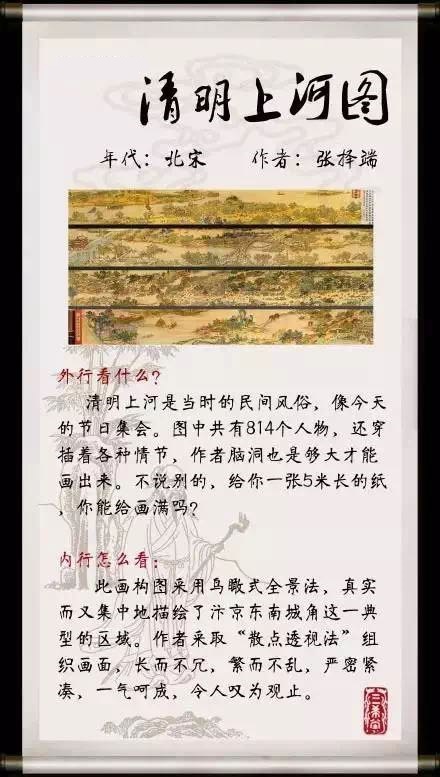 清明上河图
年代：北宋 作者：张择端
外行看什么？
清明上河是当时的民间风俗，像今天
的节日集会。图中共有814个人物，还穿
插着各种情节，作者脑洞也是够大才能
画出来。不说别的，给你一张5米长的纸
，你能给画满吗？
内行怎么看：
此画构图采用鸟瞰式全景法，真实
而又集中地描绘了汴京东南城角这一典
型的区域。作者采取“散点透视法”组
织画面，长而不冗，繁而不乱，严密紧
凑，一气呵成，令人叹为观止。